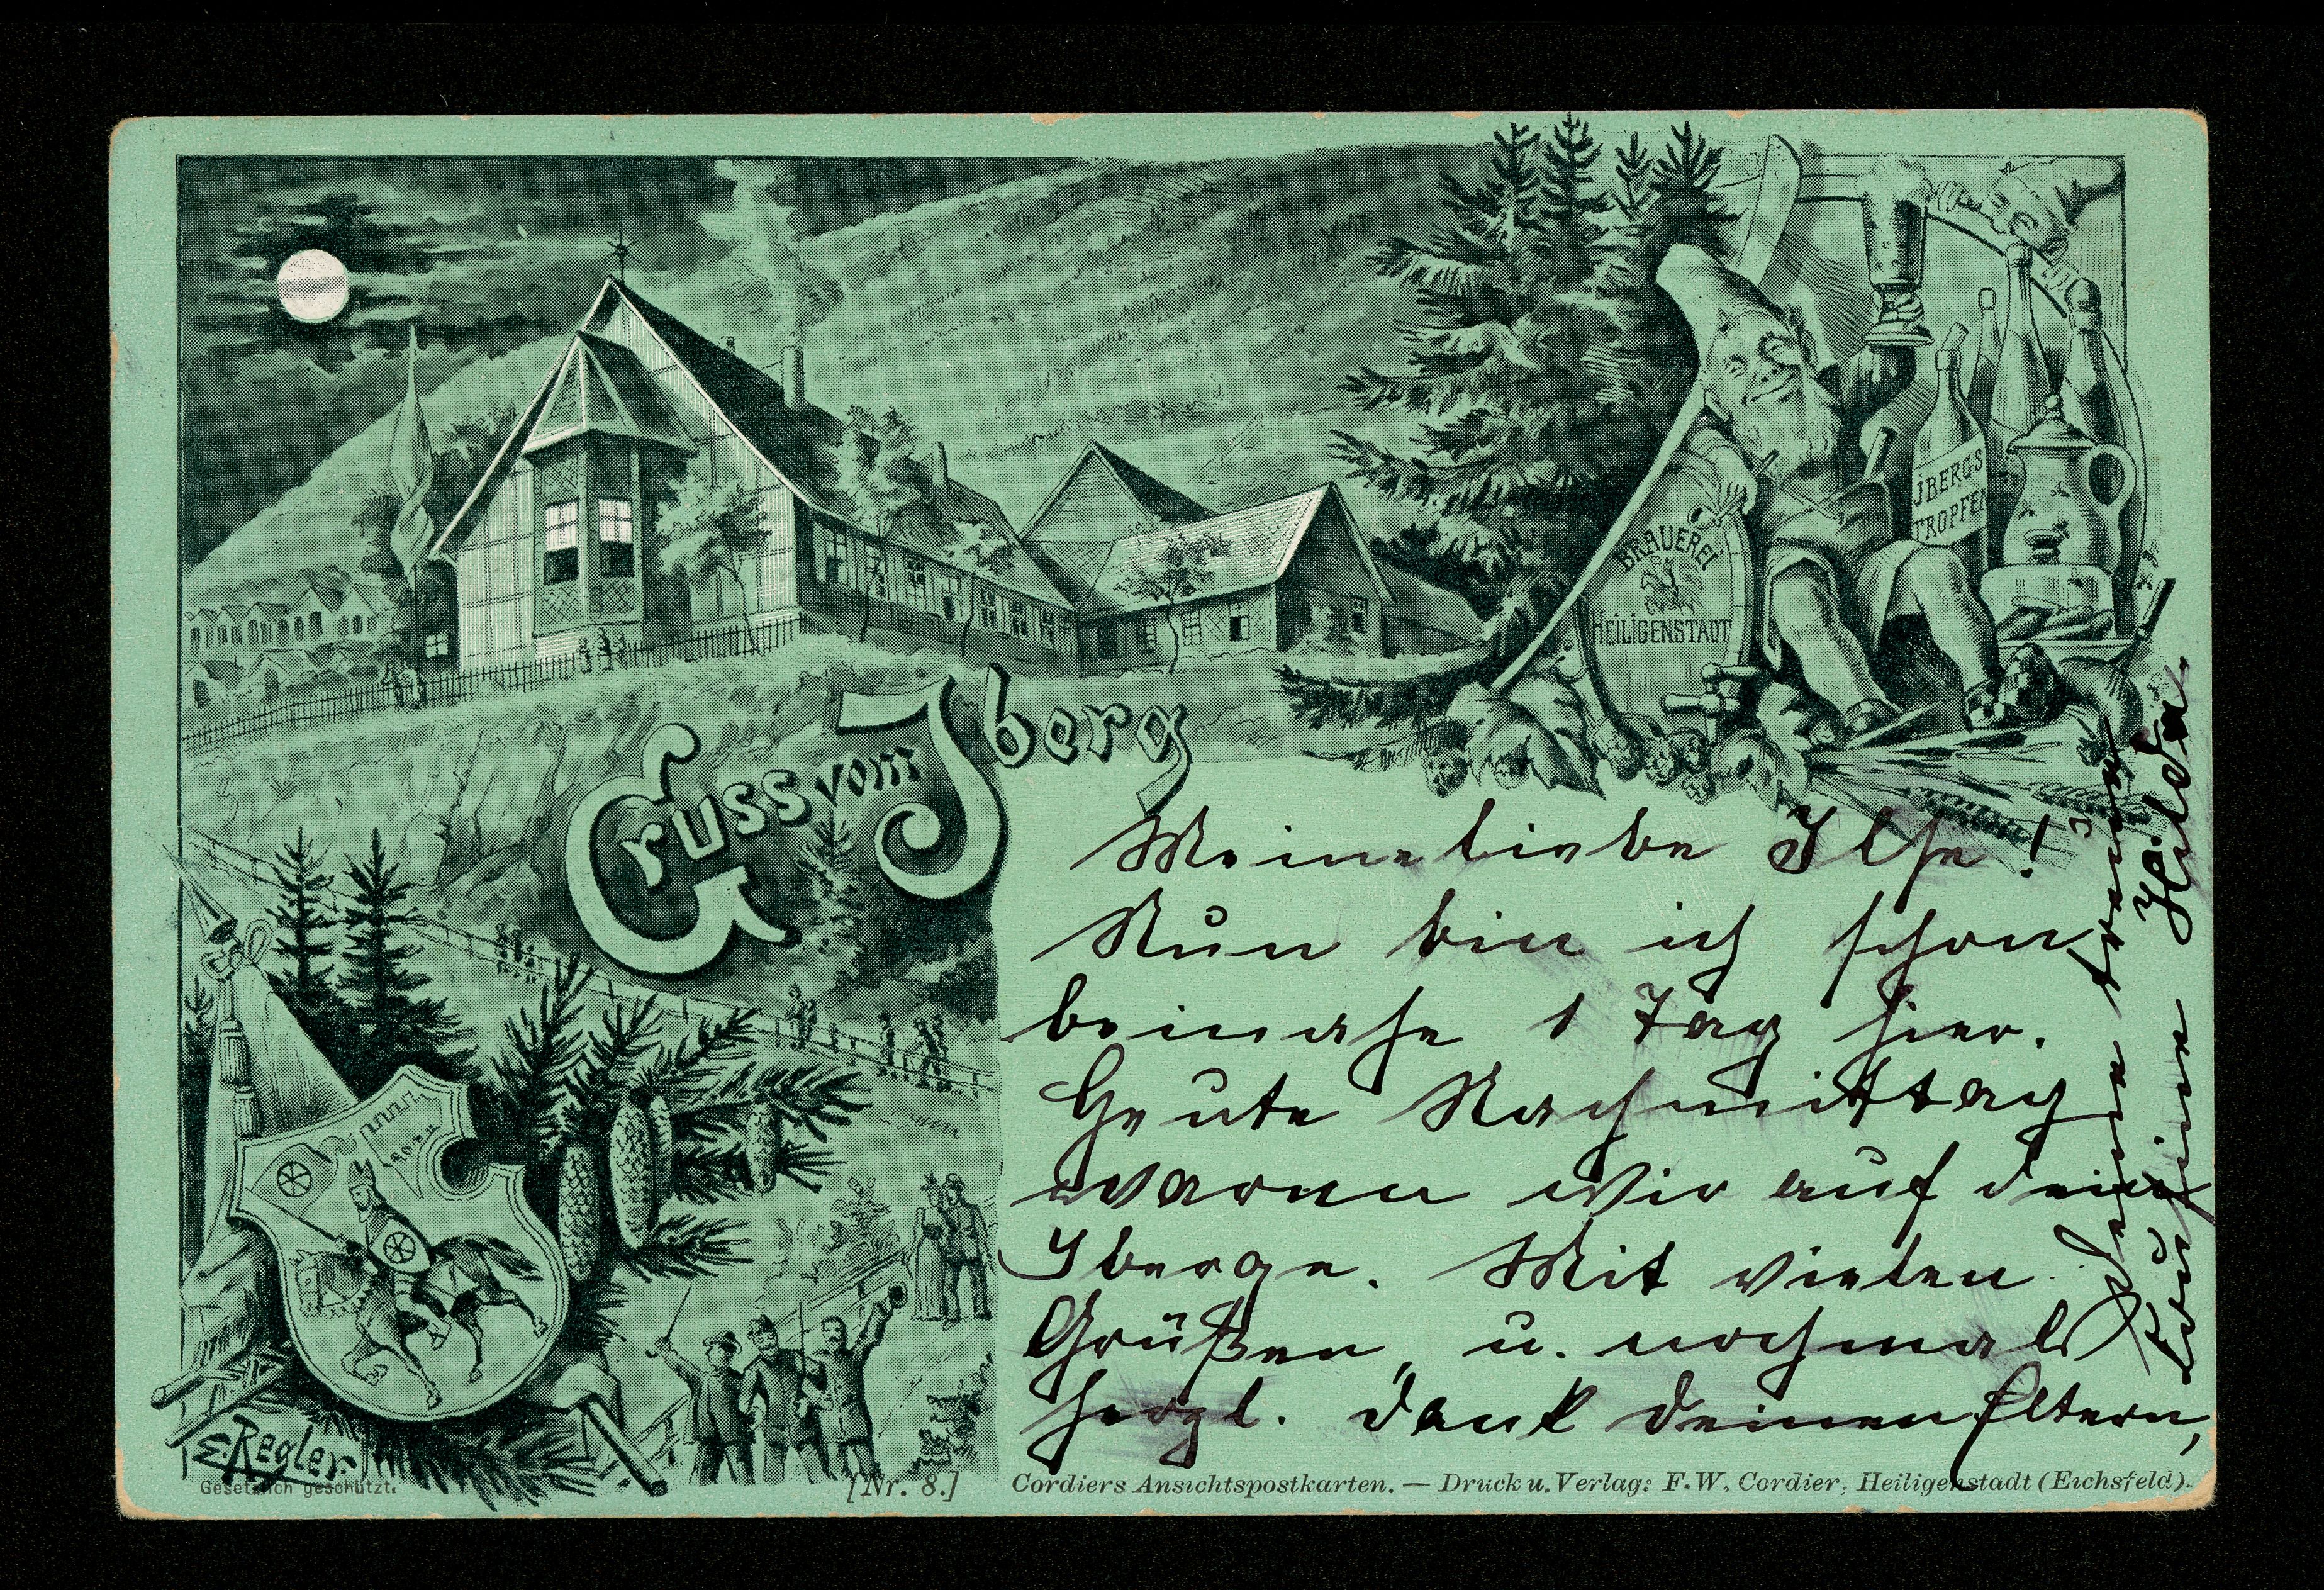 Gruss vom Iberg
BRAUEREI
HEILIGENSTADT
JBERGS
TROPFEN
Meine liebe Ilse!
Nun bin ich schon
beinahe 1 Tag hier.
Heute Nachmittag
waren wir auf dem
Iberge. Mit vielen
Grüßen, u. nochmals
herzl. Dank deinen Eltern,
deine treue
Kousine Hilda
E. Regler.
Gesetzlich geschützt.
[Nr. 8.]
Cordiers Ansichtspostkarten. — Druck u. Verlag: F. W. Cordier, Heiligenstadt (Eichsfeld).